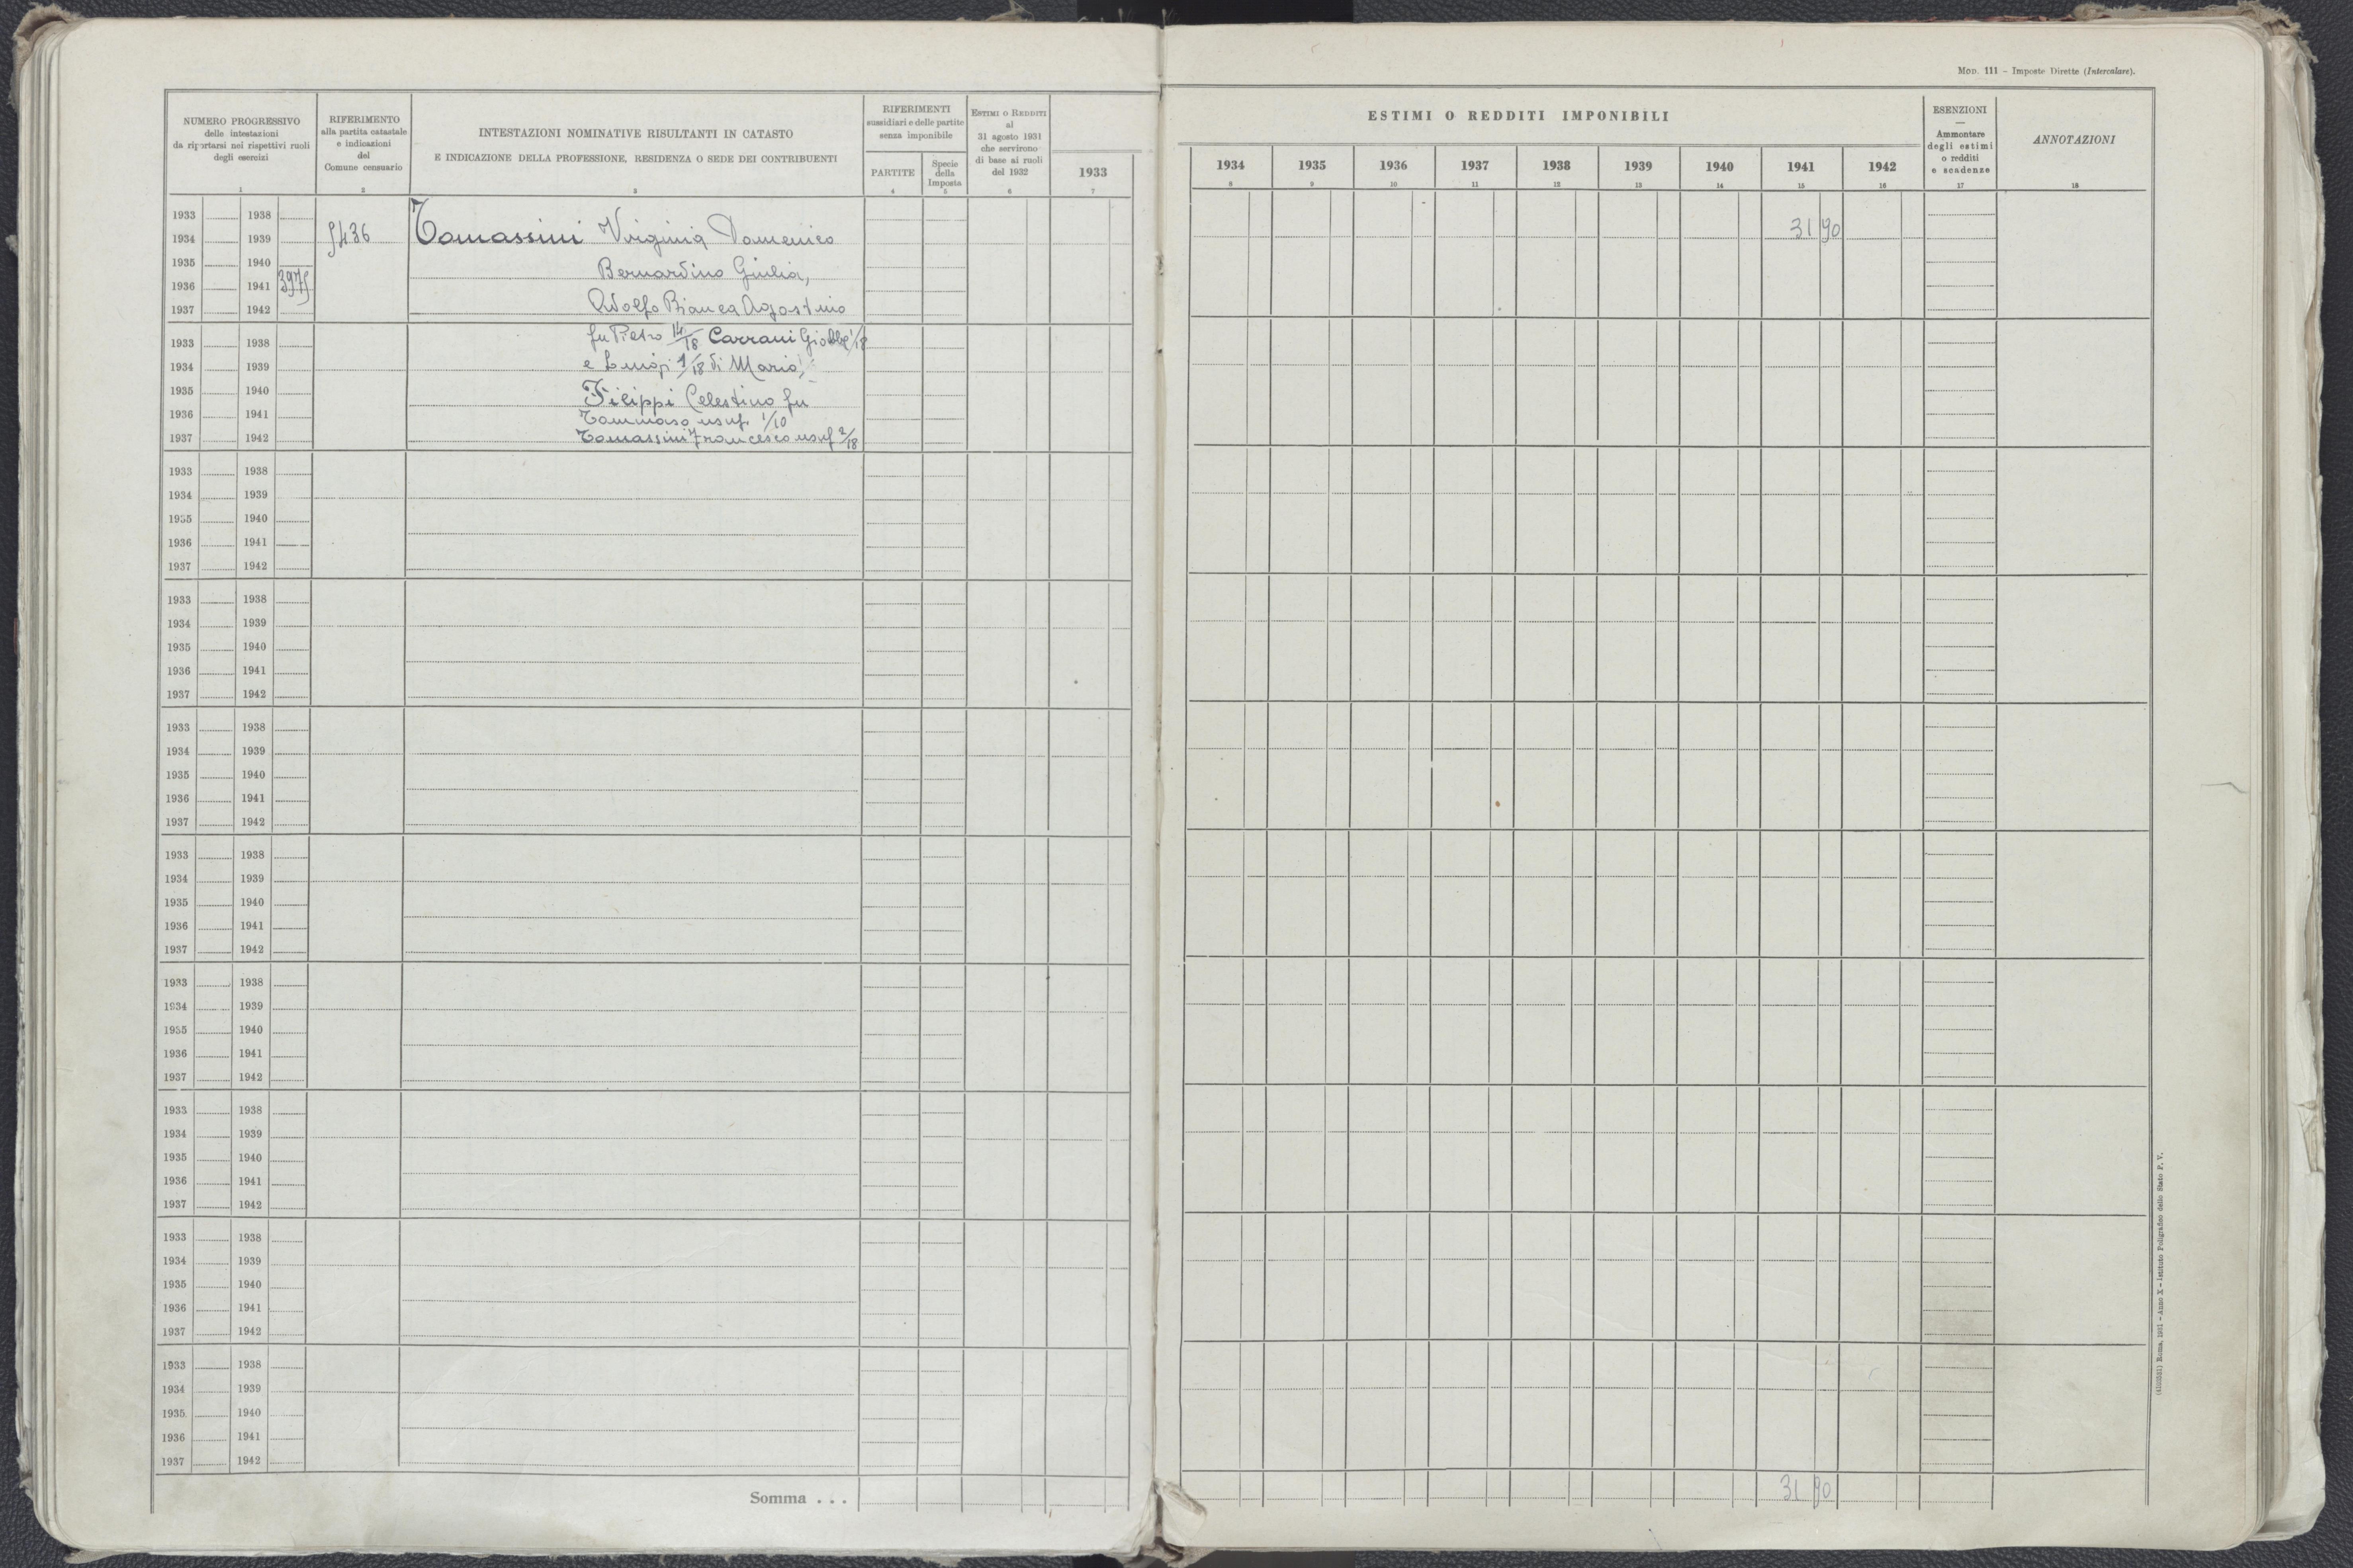 Mod. 111 – Imposte Dirette (Intercalare).
NUMERO PROGRESSIVO
delle intestazioni
da riportarsi nei rispettivi ruoli
degli esercizi
1
RIFERIMENTO
alla partita catastale
e indicazioni
del
Comune censuario
2
INTESTAZIONI NOMINATIVE RISULTANTI IN CATASTO
E INDICAZIONE DELLA PROFESSIONE, RESIDENZA O SEDE DEI CONTRIBUENTI
3
RIFERIMENTI
sussidiari e delle partite
senza imponibile
PARTITE
4
Specie
della
Imposta
5
Estimi o Redditi
al
31 agosto 1931
che servirono
di base ai ruoli
del 1932
6
1933
7
ESTIMI O REDDITI IMPONIBILI
1934 1935 1936 1937 1938 1939 1940 1941 1942
8 9 10 11 12 13 14 15 16
ESENZIONI
—
Ammontare
degli estimi
o redditi
e scadenze
17
ANNOTAZIONI
18
1933 1938
1934 1939 5436 Tomassini Virginia Domenico 31 90
1935 1940 Bernardino Giulia,
1936 1941 3975
1937 1942 Adolfo Bianca Agostino
fu Pietro 14/18 Carrani Giobbe 1/18
1933 1938
1934 1939 e Luigi 1/18 di Mario,
1935 1940 Filippi Celestino fu
1936 1941 Tommaso usuf. 1/10
1937 1942 Tomassini Francesco usuf 2/18
1933 1938
1934 1939
1935 1940
1936 1941
1937 1942
1933 1938
1934 1939
1935 1940
1936 1941
1937 1942
1933 1938
1934 1939
1935 1940
1936 1941
1937 1942
1933 1938
1934 1939
1935 1940
1936 1941
1937 1942
1933 1938
1934 1939
1935 1940
1936 1941
1937 1942
1933 1938
1934 1939
1935 1940
1936 1941
1937 1942
1933 1938
1934 1939
1935 1940
1936 1941
1937 1942
1933 1938
1934 1939
1935 1940
1936 1941
1937 1942
Somma . . . 31 90
Roma, 1931 – Anno X – Istituto Poligrafico dello Stato P. V.